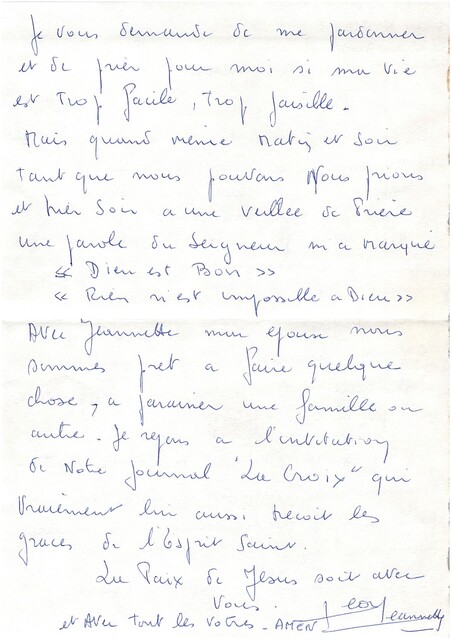 Je vous demande de me pardonner
et de prier pour moi si ma vie
est trop facile, trop paisible.
Mais quand même matin et soir
tant que nous pouvons Nous prions
et hier soir a une veillée de Prière
une parole du Seigneur m'a marqué
« Dieu est Bon »
« Rien n'est impossible a Dieu »
Avec Jeannette mon epouse nous
sommes pret a faire quelque
chose, a parainer une famille ou
autre. Je repons a l'invitation
de Notre Journal "La Croix" qui
Vraiement lui aussi. recoit les
graces de l'Esprit Saint.
La Paix de Jesus soit avec
Vous.
et Avec tout les votres. AMEN Jeannette